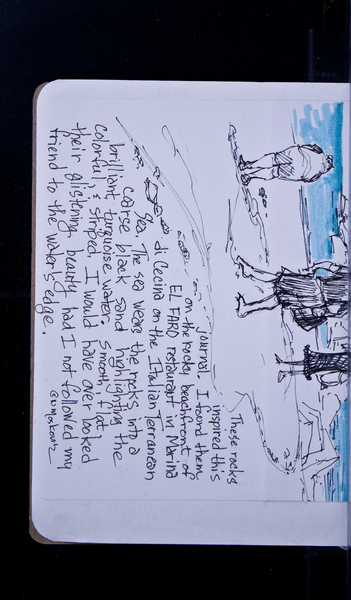 These rocks
inspired this
journal. I found them
on the rocky beachfront of
EL FARO restaurant in Marina
di Cecina on the Italian Terranean
Sea. The sea wears the rocks into a
coarse black sand highlighting the
brilliant turquoise water. Smooth, flat
colorful & striped. I would have over looked
their glistening beauty had I not followed my
friend to the water's edge.